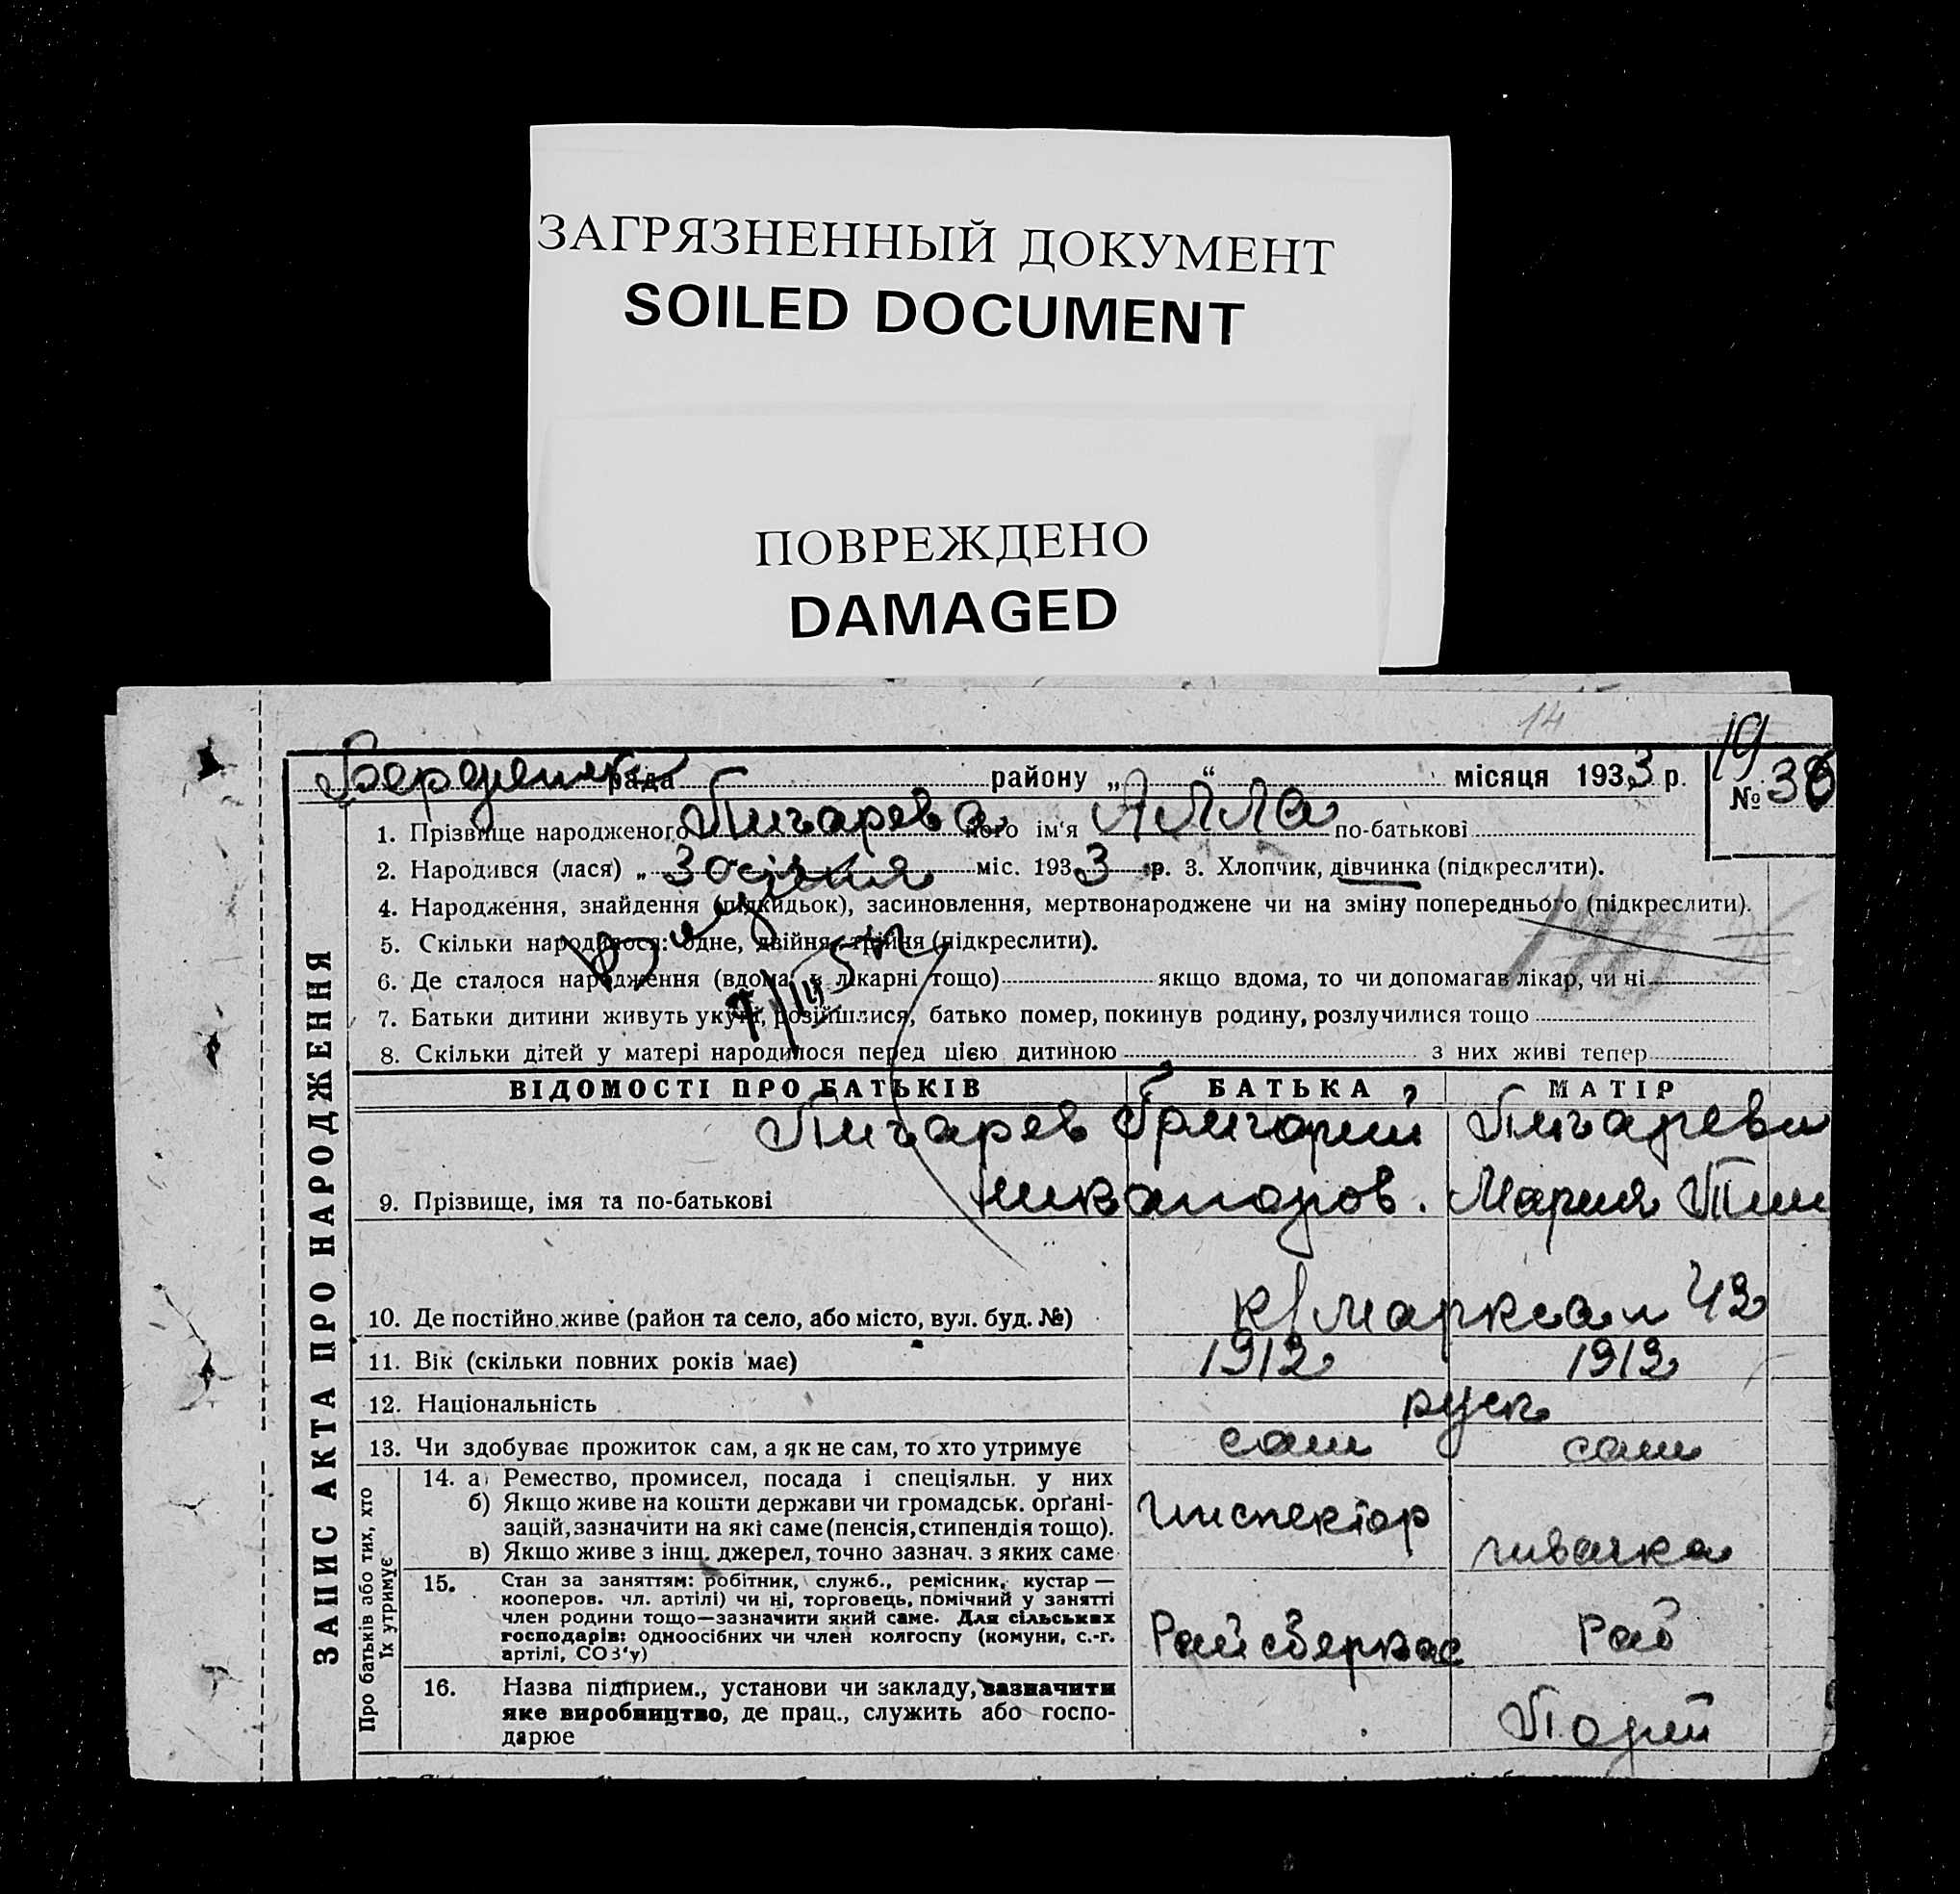 ЗАГРЯЗНЕННЫЙ ДОКУМЕНТ
SOILED DOCUMENT
ПОВРЕЖДЕНО
DAMAGED
14
19
рада району „ “ місяця 1933 р. № 38
1. Прізвище народженого Пичарева його ім'я Алла по-батькові
2. Народився (лася) „ 3 січня міс. 1933 р. 3. Хлопчик, дівчинка (підкреслити).
4. Народження, знайдення (підкидьок), засиновлення, мертвонароджене чи на зміну попереднього (підкреслити).
5. Скільки народилося: одне, двійня, трійня (підкреслити).
6. Де сталося народження (вдома, в лікарні тощо) якщо вдома, то чи допомагав лікар, чи ні
7. Батьки дитини живуть укупі, розійшлися, батько помер, покинув родину, розлучилися тощо
8. Скільки дітей у матері народилося перед цією дитиною з них живі тепер
ЗАПИС АКТА ПРО НАРОДЖЕННЯ
ВІДОМОСТІ ПРО БАТЬКІВ БАТЬКА МАТІР
Пичарев Григорий Пичарева
9. Прізвище, імя та по-батькові Никаноров. Мария Тим
10. Де постійно живе (район та село, або місто, вул. буд. №) К/Маркса 43
11. Вік (скільки повних років має) 1912 1912
12. Національність руск
13. Чи здобуває прожиток сам, а як не сам, то хто утримує сам сам
Про батьків або тих, хто їх утримує
14. а) Ремество, промисел, посада і спеціяльн. у них
б) Якщо живе на кошти держави чи громадськ. орґані-
зацій, зазначити на які саме (пенсія, стипендія тощо). Инспектор
в) Якщо живе з інш. джерел, точно зазнач. з яких саме швачка
15. Стан за заняттям: робітник, служб., ремісник, кустар —
кооперов. чл. артілі) чи ні, торговець, помічний у занятті
член родини тощо—зазначити який саме. Для сільських
господарів: одноосібних чи член колгоспу (комуни, с.-г. Райсберкас Раб
артілі, СОЗ'у)
16. Назва підприєм., установи чи закладу, зазначити
яке виробництво, де прац., служить або госпо-
дарює